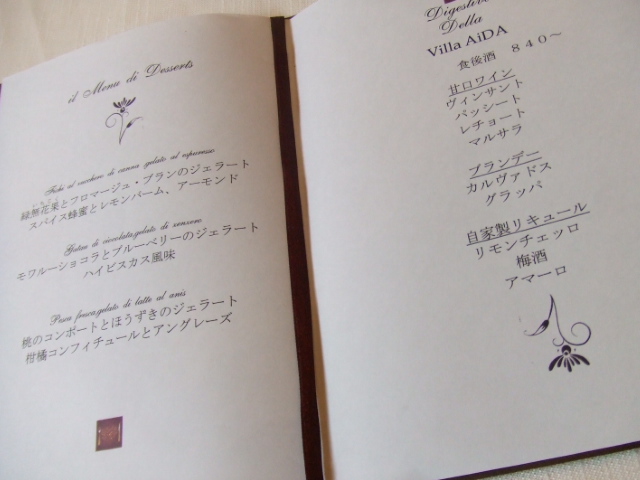 il Menu di Desserts
Fichi al zucchero di canna gelato al espresso
緑無花果とフロマージュ・ブランのジェラート
スパイス蜂蜜とレモンバーム、アーモンド
di cioccolato,gelato di zenzero
モワルーショコラとブルーベリーのジェラート
ハイビスカス風味
Pesca fresca,gelato di latte al anis
桃のコンポートとほうずきのジェラート
柑橘コンフィチュールとアングレーズ
Digestivo
Della
Villa AiDA
食後酒 840~
甘口ワイン
ヴィンサント
パッシート
レチョート
マルサラ
ブランデー
カルヴァドス
グラッパ
自家製リキュール
リモンチェッロ
梅酒
アマーロ